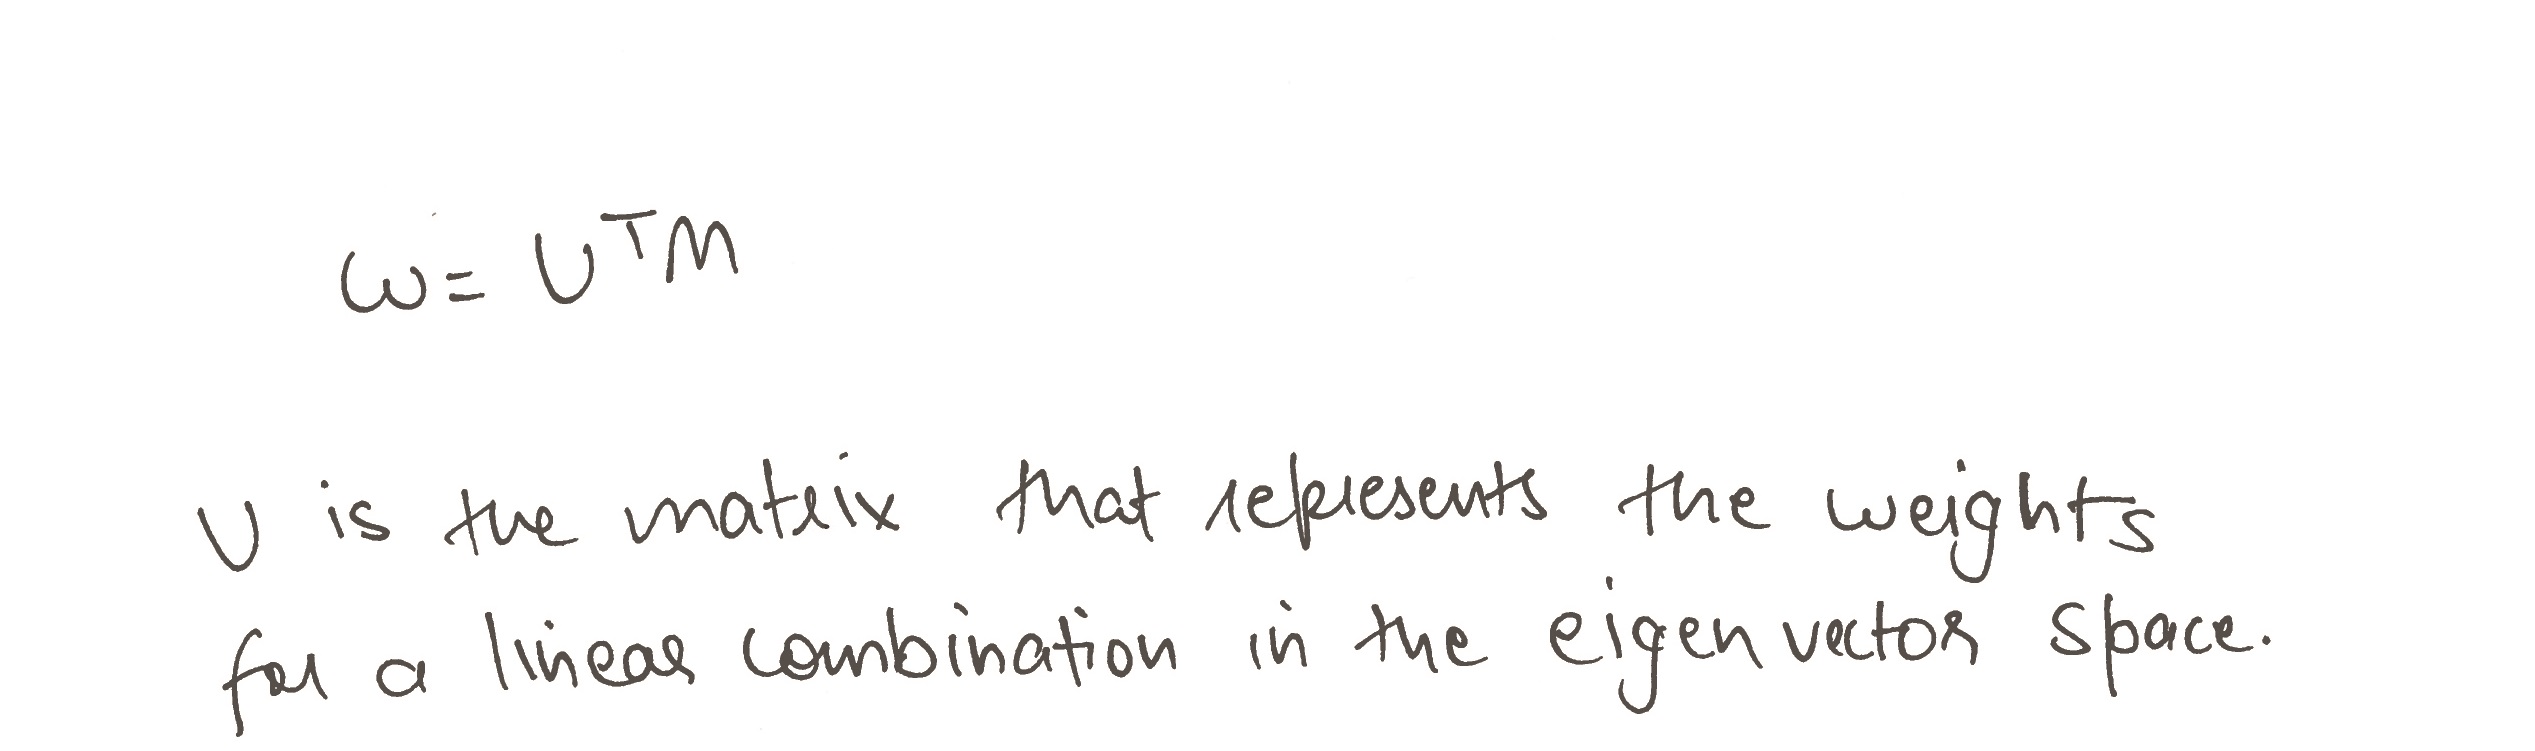 ω = U^T M
U is the matrix that represents the weights
for a linear combination in the eigen vector space.